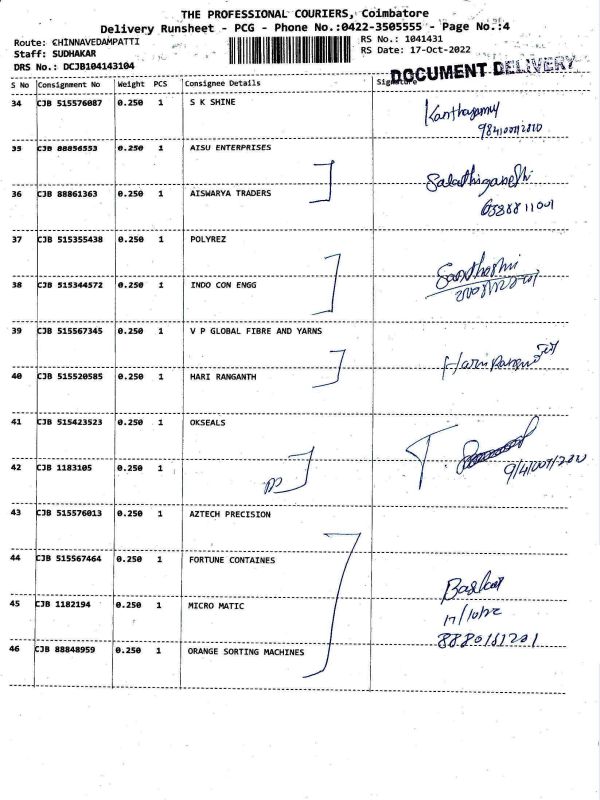 THE PROFESSIONAL COURIERS, Coimbatore
Delivery Runsheet - PCG - Phone No.:0422-3505555 - Page No.:4
Route: CHINNAVEDAMPATTI
RS No.: 1041431
Staff: SUDHAKAR
RS Date: 17-Oct-2022
DRS No.: DCJB104143104
DOCUMENT DELIVERY
S No Consignment No Weight PCS Consignee Details Signature
34 CJB 515576087 0.250 1 S K SHINE
35 CJB 88856553 0.250 1 AISU ENTERPRISES
36 CJB 88861363 0.250 1 AISWARYA TRADERS
37 CJB 515355438 0.250 1 POLYREZ
38 CJB 515344572 0.250 1 INDO CON ENGG
39 CJB 515567345 0.250 1 V P GLOBAL FIBRE AND YARNS
40 CJB 515520585 0.250 1 HARI RANGANTH
41 CJB 515423523 0.250 1 OKSEALS
42 CJB 1183105 0.250 1
43 CJB 515576013 0.250 1 AZTECH PRECISION
44 CJB 515567464 0.250 1 FORTUNE CONTAINES
45 CJB 1182194 0.250 1 MICRO MATIC
17/10/22
46 CJB 88848959 0.250 1 ORANGE SORTING MACHINES